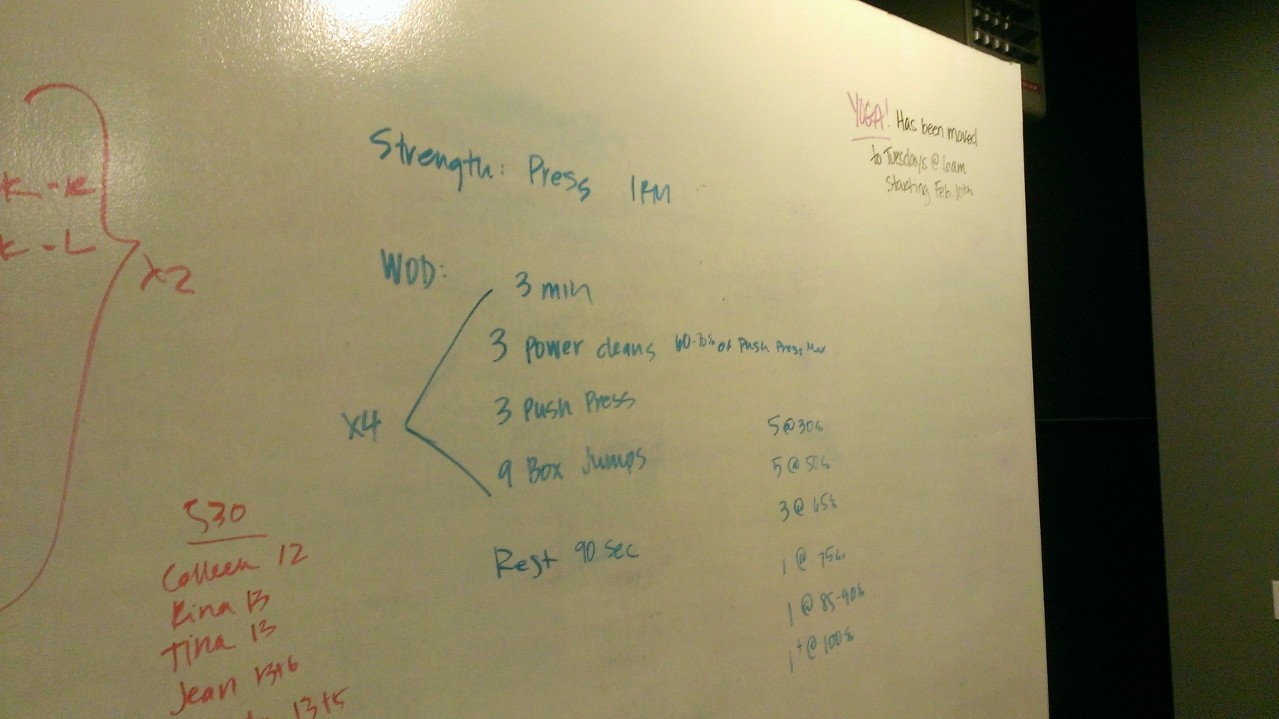 YOGA! Has been moved
to Tuesdays @ 6am
Starting Feb. 10th
Strength: Press 1RM
WOD:
3 min
3 Power cleans 60-70% of Push Press Max
3 Push Press
9 Box Jumps
X4
Rest 90 sec
5 @ 30%
5 @ 50%
3 @ 65%
1 @ 75%
1 @ 85-90%
1+ @ 100%
K-R
K-L
X2
530
Colleen 12
Rina 13
Tina 13
Jean 13+6
13+5